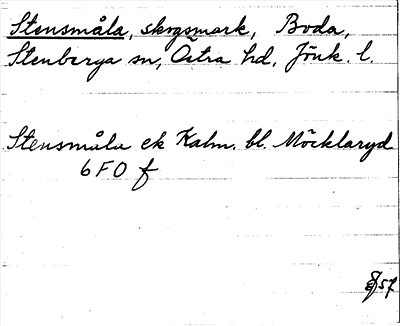 Stensmåla, skogsmark, Boda,
Stenberga sn, Östra hd, Jönk. l.
Stensmåla ek Kalm. bl. Möcklaryd
6 F O f
57